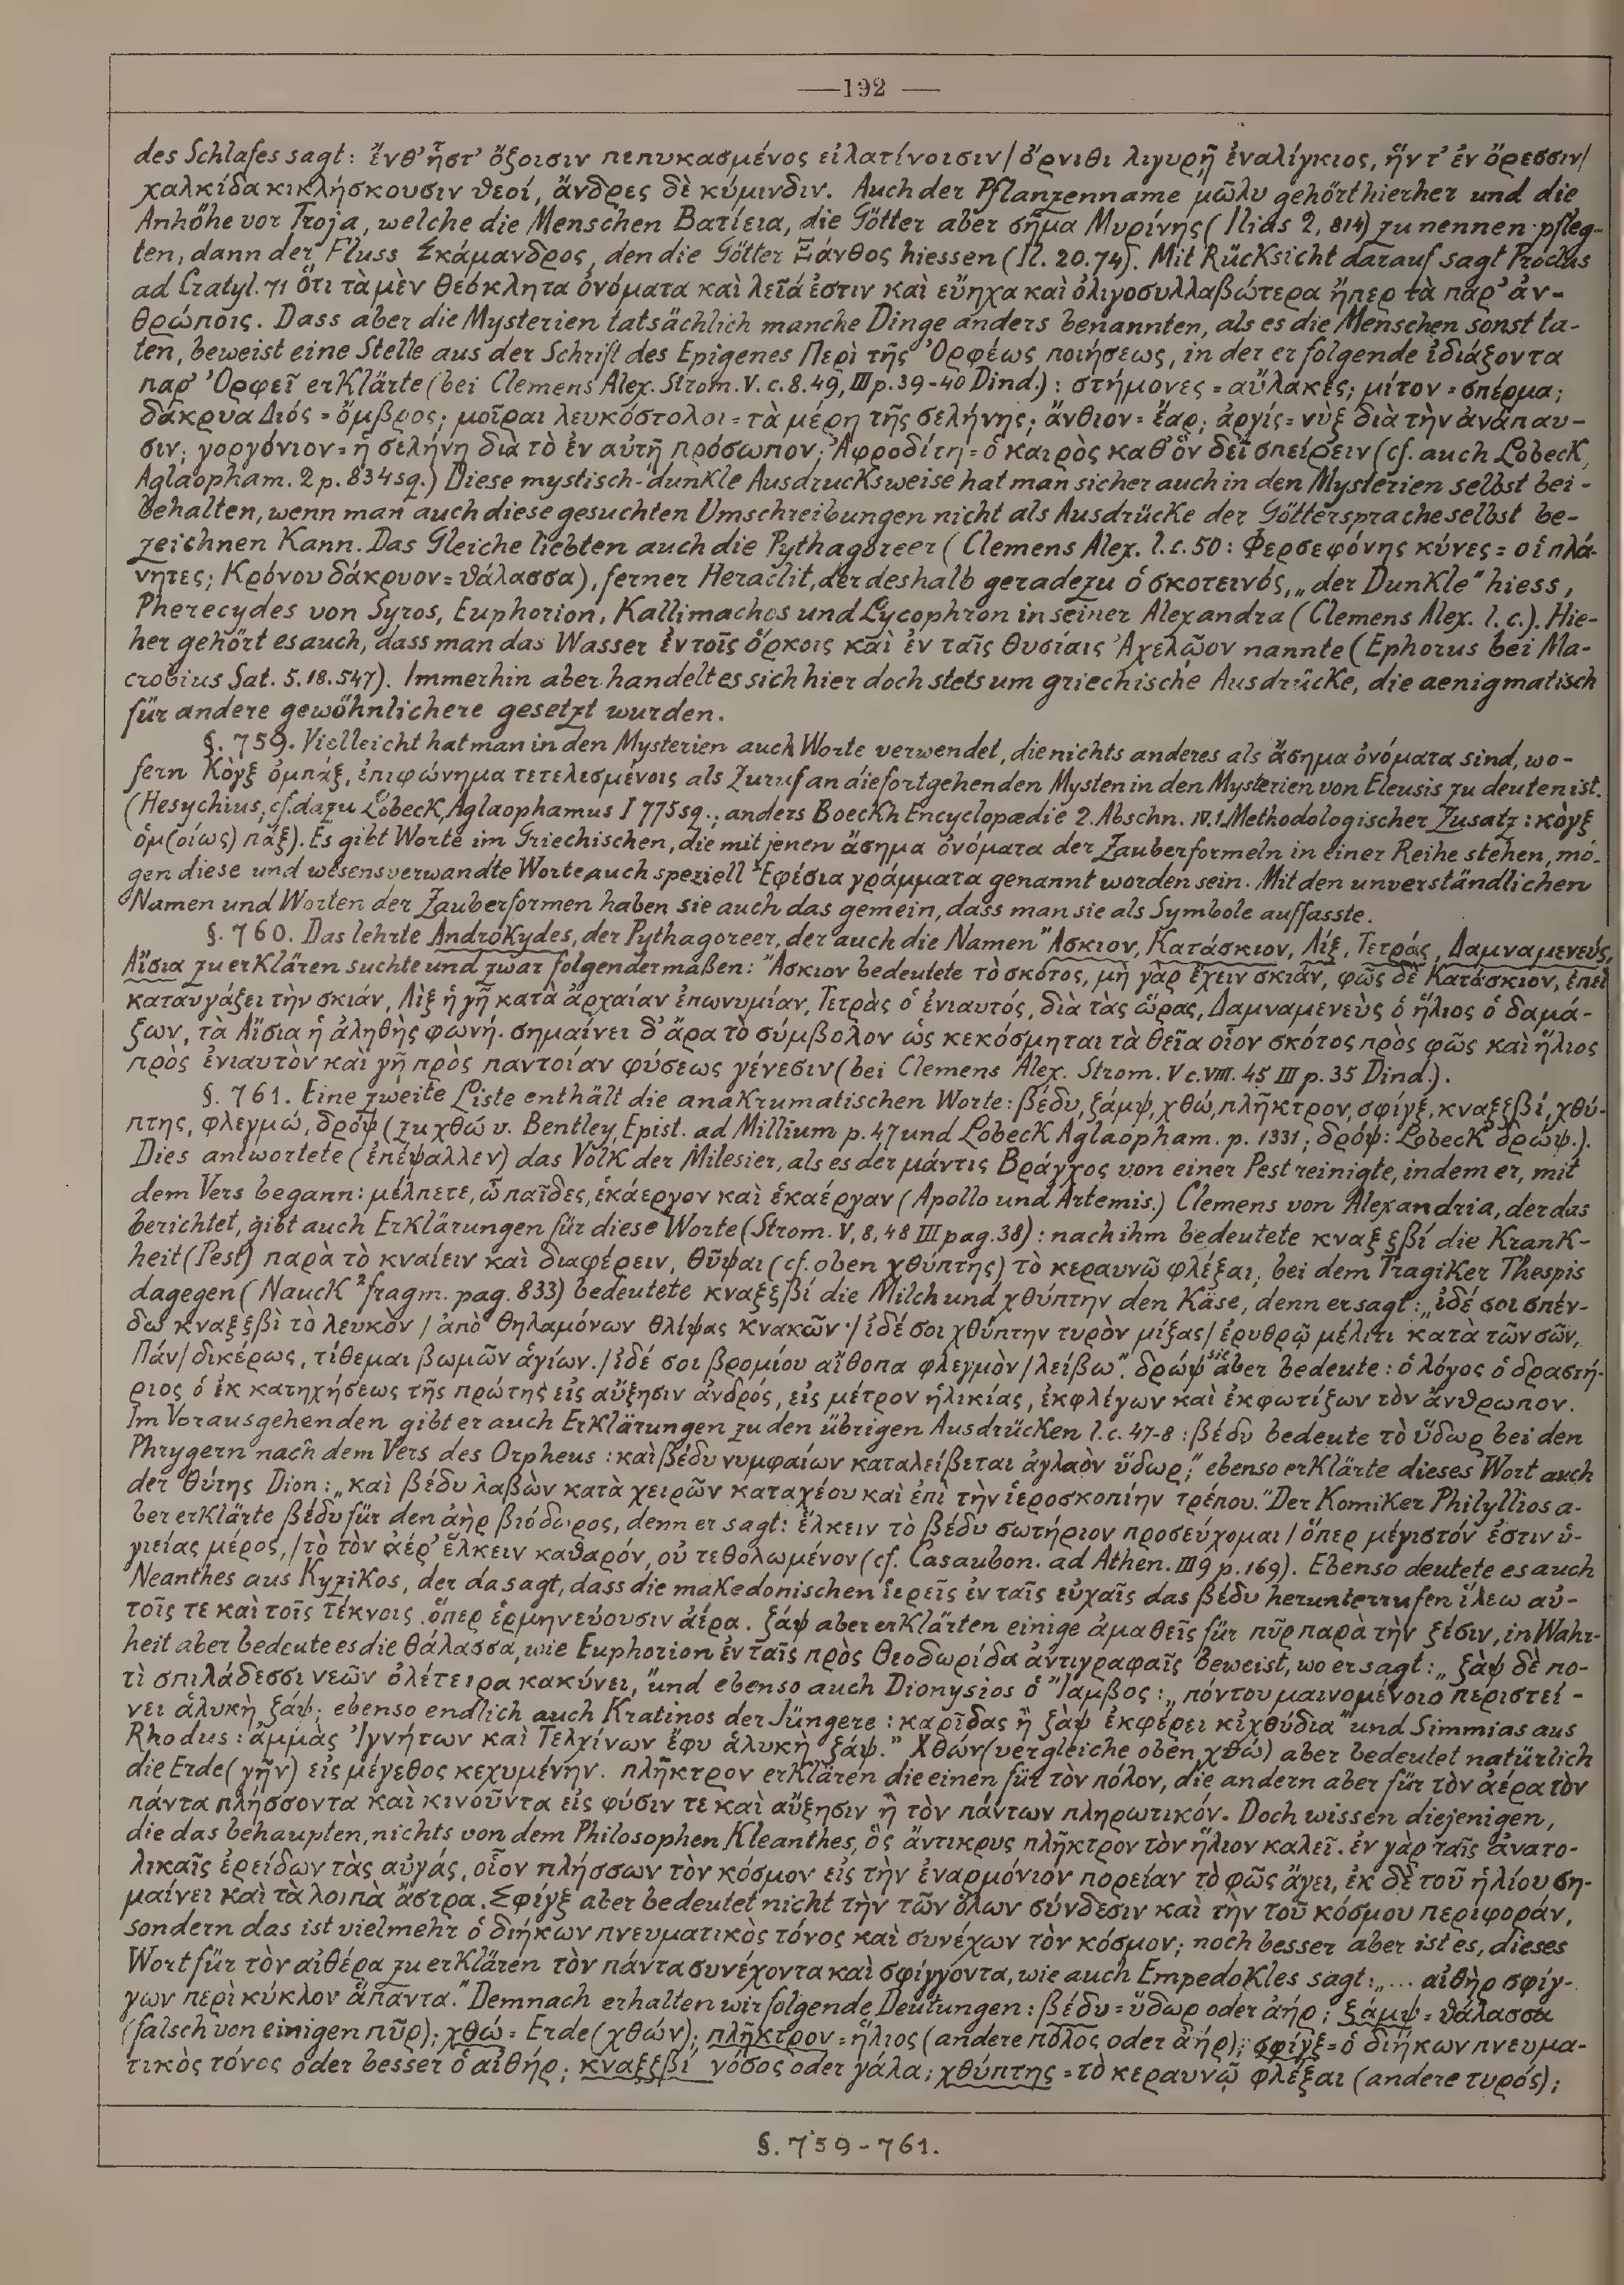 —192—
des Schlafes sagt: ἔνθ' ἧστ' ὄξοισιν πεπυκασμένος εἰλατίνοισιν/ὄρνιθι λιγυρῇ ἐναλίγκιος, ἥν τ' ἐν ὄρεσσιν/
χαλκίδα κικλήσκουσιν θεοί, ἄνδρες δὲ κύμινδιν. Auch der Pflanzenname μῶλυ gehört hierher und die
Anhöhe vor Troja, welche die Menschen Βατίεια, die Götter aber σῆμα Μυρίνης (Ilias 2, 814) zu nennen pfleg-
ten, dann der Fluss Σκάμανδρος, den die Götter Ξάνθος hiessen (Il. 20.74). Mit Rücksicht darauf sagt Proclus
ad Cratyl. 71 ὅτι τὰ μὲν θεόκλητα ὀνόματα καὶ λεῖά ἐστιν καὶ εὔηχα καὶ ὀλιγοσυλλαβώτερα ἤπερ τὰ παρ' ἀν-
θρώποις. Dass aber die Mysterien tatsächlich manche Dinge anders benannten, als es die Menschen sonst ta-
ten, beweist eine Stelle aus der Schrift des Epigenes Περὶ τῆς Ὀρφέως ποιήσεως, in der er folgende ἰδιάξοντα
παρ' Ὀρφεῖ erklärte (bei Clemens Alex. Strom. V. c. 8. 49, III p. 39-40 Dind.): στήμονες = αὔλακες; μίτον = σπέρμα;
δάκρυα Διός = ὄμβρος; μοῖραι λευκόστολοι = τὰ μέρη τῆς σελήνης; ἄνθιον = ἔαρ; ἀργίς = νὺξ διὰ τὴν ἀνάπαυ-
σιν; γοργόνιον = ἡ σελήνη διὰ τὸ ἐν αὐτῇ πρόσωπον; Ἀφροδίτη = ὁ καιρὸς καθ' ὃν δεῖ σπείρειν (cf. auch Lobeck,
Aglaopham. 2 p. 834 sq.) Diese mystisch-dunkle Ausdrucksweise hat man sicher auch in den Mysterien selbst bei-
behalten, wenn man auch diese gesuchten Umschreibungen nicht als Ausdrücke der Göttersprache selbst be-
zeichnen kann. Das Gleiche liebten auch die Pythagoreer (Clemens Alex. l. c. 50: Φερσεφόνης κύνες = οἱ πλά-
νητες; Κρόνου δάκρυον = θάλασσα), ferner Heraclit, der deshalb geradezu ὁ σκοτεινός, „der Dunkle" hiess,
Pherecydes von Syros, Euphorion, Kallimachos und Lycophron in seiner Alexandra (Clemens Alex. l. c.). Hie-
her gehört es auch, dass man das Wasser ἐν τοῖς ὅρκοις καὶ ἐν ταῖς θυσίαις Ἀχελῷον nannte (Ephorus bei Ma-
crobius Sat. 5. 18. 547). Immerhin aber handelt es sich hier doch stets um griechische Ausdrücke, die aenigmatisch
für andere gewöhnlichere gesetzt wurden.
§. 759. Vielleicht hat man in den Mysterien auch Worte verwendet, die nichts anderes als ἄσημα ὀνόματα sind, wo-
fern Κὸγξ ὀμπὰξ, ἐπιφώνημα τετελεσμένοις als Zuruf an die fortgehenden Mysten in den Mysterien von Eleusis zu deuten ist.
(Hesychius, cf. dazu Lobeck, Aglaophamus I 775 sq.; anders Boeckh Encyclopædie 2. Abschn. IV. 1. Methodologischer Zusatz: κὸγξ
ὁμ(οίως) πὰξ). Es gibt Worte im Griechischen, die mit jenen ἄσημα ὀνόματα der Zauberformeln in einer Reihe stehen, mö-
gen diese und wesensverwandte Worte auch speziell Ἐφέσια γράμματα genannt worden sein. Mit den unverständlichen
Namen und Worten der Zauberformen haben sie auch das gemein, dass man sie als Symbole auffasste.
§. 760. Das lehrte Androkydes, der Pythagoreer, der auch die Namen Ἄσκιον, Κατάσκιον, Λίξ, Τετράς, Δαμναμενεύς,
Αἴσια zu erklären suchte und zwar folgendermaßen: Ἄσκιον bedeutete τὸ σκότος, μὴ γὰρ ἔχειν σκιάν, φῶς δὲ Κατάσκιον, ἐπεὶ
καταυγάξει τὴν σκιάν, Λὶξ ἡ γῆ κατὰ ἀρχαίαν ἐπωνυμίαν, Τετρὰς ὁ ἐνιαυτός, διὰ τὰς ὥρας, Δαμναμενεὺς ὁ ἥλιος ὁ δαμά-
ξων, τὰ Αἴσια ἡ ἀληθὴς φωνή. σημαίνει δ' ἄρα τὸ σύμβολον ὡς κεκόσμηται τὰ θεῖα οἷον σκότος πρὸς φῶς καὶ ἥλιος
πρὸς ἐνιαυτὸν καὶ γῆ πρὸς παντοίαν φύσεως γένεσιν (bei Clemens Alex. Strom. V c. VIII. 45 III p. 35 Dind.).
§. 761. Eine zweite Liste enthält die anakrumatischen Worte: βέδυ, ξάμψ, χθώ, πλῆκτρον, σφίγξ, κναξξβί, χθύ-
πτης, φλεγμώ, δρόψ (zu χθώ v. Bentley, Epist. ad Millium p. 47 und Lobeck Aglaopham. p. 1331; δρόψ: Lobeck δρώψ.).
Dies antwortete (ἐπέψαλλεν) das Volk der Milesier, als es der μάντις Βράγχος von einer Pest reinigte, indem er, mit
dem Vers begann: μέλπετε, ὦ παῖδες, ἑκάεργον καὶ ἑκαέργαν (Apollo und Artemis.) Clemens von Alexandria, der das
berichtet, gibt auch Erklärungen für diese Worte (Strom. V, 8, 48 III pag. 38): nach ihm bedeutete κναξξβί die Krank-
heit (Pest) παρὰ τὸ κναίειν καὶ διαφέρειν, θῦψαι (cf. oben χθύπτης) τὸ κεραυνῷ φλέξαι, bei dem Tragiker Thespis
dagegen (Nauck ² fragm. pag. 833) bedeutete κναξξβί die Milch und χθύπτην den Käse, denn er sagt: „ἰδέ σοι σπέν-
δω κναξξβὶ τὸ λευκὸν / ἀπὸ θηλαμόνων θλίψας κνακῶν·/ ἰδέ σοι χθύπτην τυρὸν μίξας / ἐρυθρῷ μέλιτι κατὰ τῶν σῶν,
Πάν / δικέρως, τίθεμαι βωμῶν ἁγίων./ ἰδέ σοι βρομίου αἴθοπα φλεγμὸν / λείβω". δρώψ sic aber bedeute: ὁ λόγος ὁ δραστή-
ριος ὁ ἐκ κατηχήσεως τῆς πρώτης εἰς αὔξησιν ἀνδρός, εἰς μέτρον ἡλικίας, ἐκφλέγων καὶ ἐκφωτίξων τὸν ἄνθρωπον.
Im Vorausgehenden gibt er auch Erklärungen zu den übrigen Ausdrücken l. c. 47-8: βέδυ bedeute τὸ ὕδωρ bei den
Phrygern nach dem Vers des Orpheus: καὶ βέδυ νυμφαίων καταλείβεται ἀγλαὸν ὕδωρ;" ebenso erklärte dieses Wort auch
der θύτης Dion: „καὶ βέδυ λαβὼν κατὰ χειρῶν καταχέου καὶ ἐπὶ τὴν ἱεροσκοπίην τρέπου." Der Komiker Philyllios a-
ber erklärte βέδυ für den ἀὴρ βιόδωρος, denn er sagt: ἕλκειν τὸ βέδυ σωτήριον προσεύχομαι / ὅπερ μέγιστόν ἐστιν ὑ-
γιείας μέρος, / τὸ τὸν ἀέρ' ἕλκειν καθαρόν, οὐ τεθολωμένον (cf. Casaubon. ad Athen. III 9 p. 169). Ebenso deutete es auch
Neanthes aus Kyzikos, der da sagt, dass die makedonischen ἱερεῖς ἐν ταῖς εὐχαῖς das βέδυ herunterrufen ἵλεω αὐ-
τοῖς τε καὶ τοῖς τέκνοις. ὅπερ ἑρμηνεύουσιν ἀέρα. ξάψ aber erklärten einige ἀμαθεῖς für πῦρ παρὰ τὴν ξέσιν, in Wahr-
heit aber bedeute es die θάλασσα, wie Euphorion ἐν ταῖς πρὸς Θεοδωρίδα ἀντιγραφαῖς beweist, wo er sagt: „ξὰψ δὲ πο-
τὶ σπιλάδεσσι νεῶν ὀλέτειρα κακύνει, "und ebenso auch Dionysios ὁ Ἴαμβος: „πόντου μαινομένοιο περιστεί-
νει ἁλυκὴ ξάψ; ebenso endlich auch Kratinos der Jüngere: καρῖδας ἢ ξὰψ ἐκφέρει κἰχθύδια" und Simmias aus
Rhodus: ἀμμὰς Ἰγνήτων καὶ Τελχίνων ἔφυ ἁλυκὴ ξάψ." Χθών (vergleiche oben χθώ) aber bedeutet natürlich
die Erde (γῆν) εἰς μέγεθος κεχυμένην. πλῆκτρον erklären die einen für τὸν πόλον, die andern aber für τὸν ἀέρα τὸν
πάντα πλήσσοντα καὶ κινοῦντα εἰς φύσιν τε καὶ αὔξησιν ἢ τὸν πάντων πληρωτικόν. Doch wissen diejenigen,
die das behaupten, nichts von dem Philosophen Kleanthes, ὃς ἄντικρυς πλῆκτρον τὸν ἥλιον καλεῖ. ἐν γὰρ ταῖς ἀνατο-
λικαῖς ἐρείδων τὰς αὐγάς, οἷον πλήσσων τὸν κόσμον εἰς τὴν ἐναρμόνιον πορείαν τὸ φῶς ἄγει, ἐκ δὲ τοῦ ἡλίου ση-
μαίνει καὶ τὰ λοιπὰ ἄστρα. Σφίγξ aber bedeutet nicht τὴν τῶν ὅλων σύνδεσιν καὶ τὴν τοῦ κόσμου περιφοράν,
sondern das ist vielmehr ὁ διήκων πνευματικὸς τόνος καὶ συνέχων τὸν κόσμον; noch besser aber ist es, dieses
Wort für τὸν αἰθέρα zu erklären τὸν πάντα συνέχοντα καὶ σφίγγοντα, wie auch Empedokles sagt: „... αἰθὴρ σφίγ-
γων περὶ κύκλον ἅπαντα." Demnach erhalten wir folgende Deutungen: βέδυ = ὕδωρ oder ἀήρ; ξάμψ = θάλασσα
(falsch von einigen πῦρ); χθώ = Erde (χθών); πλῆκτρον = ἥλιος (andere πόλος oder ἀήρ); σφίγξ = ὁ διήκων πνευμα-
τικὸς τόνος oder besser ὁ αἰθήρ; κναξξβί νόσος oder γάλα; χθύπτης = τὸ κεραυνῷ φλέξαι (andere τυρός);
§. 759-761.